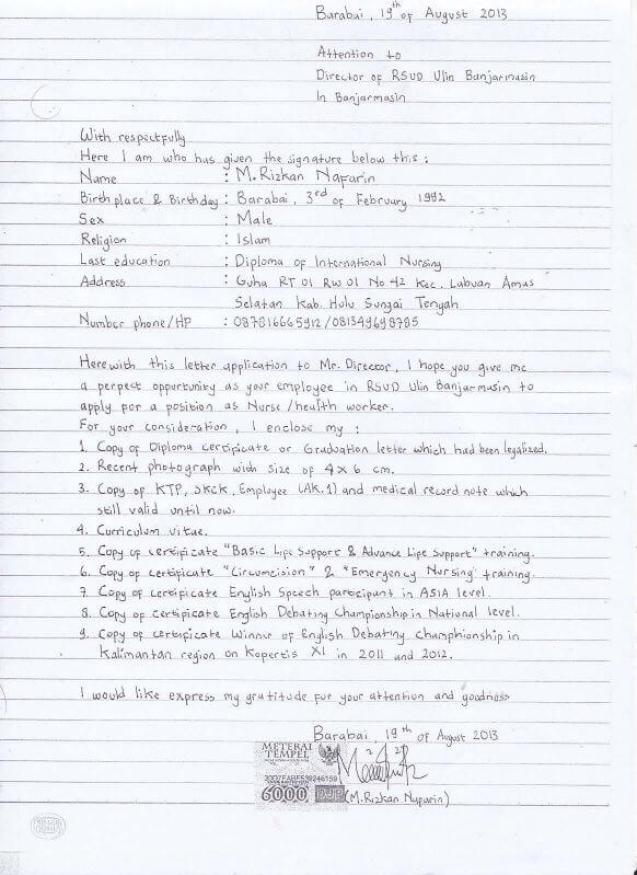 Barabai, 19th of August 2013
Attention to
Director of RSUD Ulin Banjarmasin
In Banjarmasin
With respectfully
Here I am who has given the signature below this :
Name : M. Rizkan Naparin
Birth place & Birthday : Barabai, 3rd of February 1992
Sex : Male
Religion : Islam
Last education : Diploma of International Nursing
Address : Guha RT 01 RW 01 No. 42 Kec. Labuan Amas
Selatan Kab. Hulu Sungai Tengah
Number phone/HP : 087816665912 /081349698785
Herewith this letter application to Mr. Director, I hope you give me
a perpect opportunity as your employee in RSUD Ulin Banjarmasin to
apply por a position as Nurse /health worker.
For your consideration, I enclose my :
1. Copy of Diploma certificate or Graduation letter which had been legalized.
2. Recent photograph with size of 4 x 6 cm.
3. Copy of KTP, SKCK, Employee (AK.1) and medical record note which
still valid until now.
4. Curriculum vitae.
5. Copy of certipicate "Basic Lipe Support & Advance Lipe Support" training.
6. Copy of certipicate "Circumcision" & "Emergency Nursing" training.
7. Copy of certipicate English Speech participant in ASIA level.
8. Copy of certipicate English Debating Championship in National level.
9. Copy of certipicate Winner of English Debating Champhionship in
Kalimantan region on Kopertis XI in 2011 and 2012.
I would like express my gratitude for your attention and goodness
Barabai, 19th of August 2013
METERAI
TEMPEL
6000 DJP
(M.Rizkan Naparin)